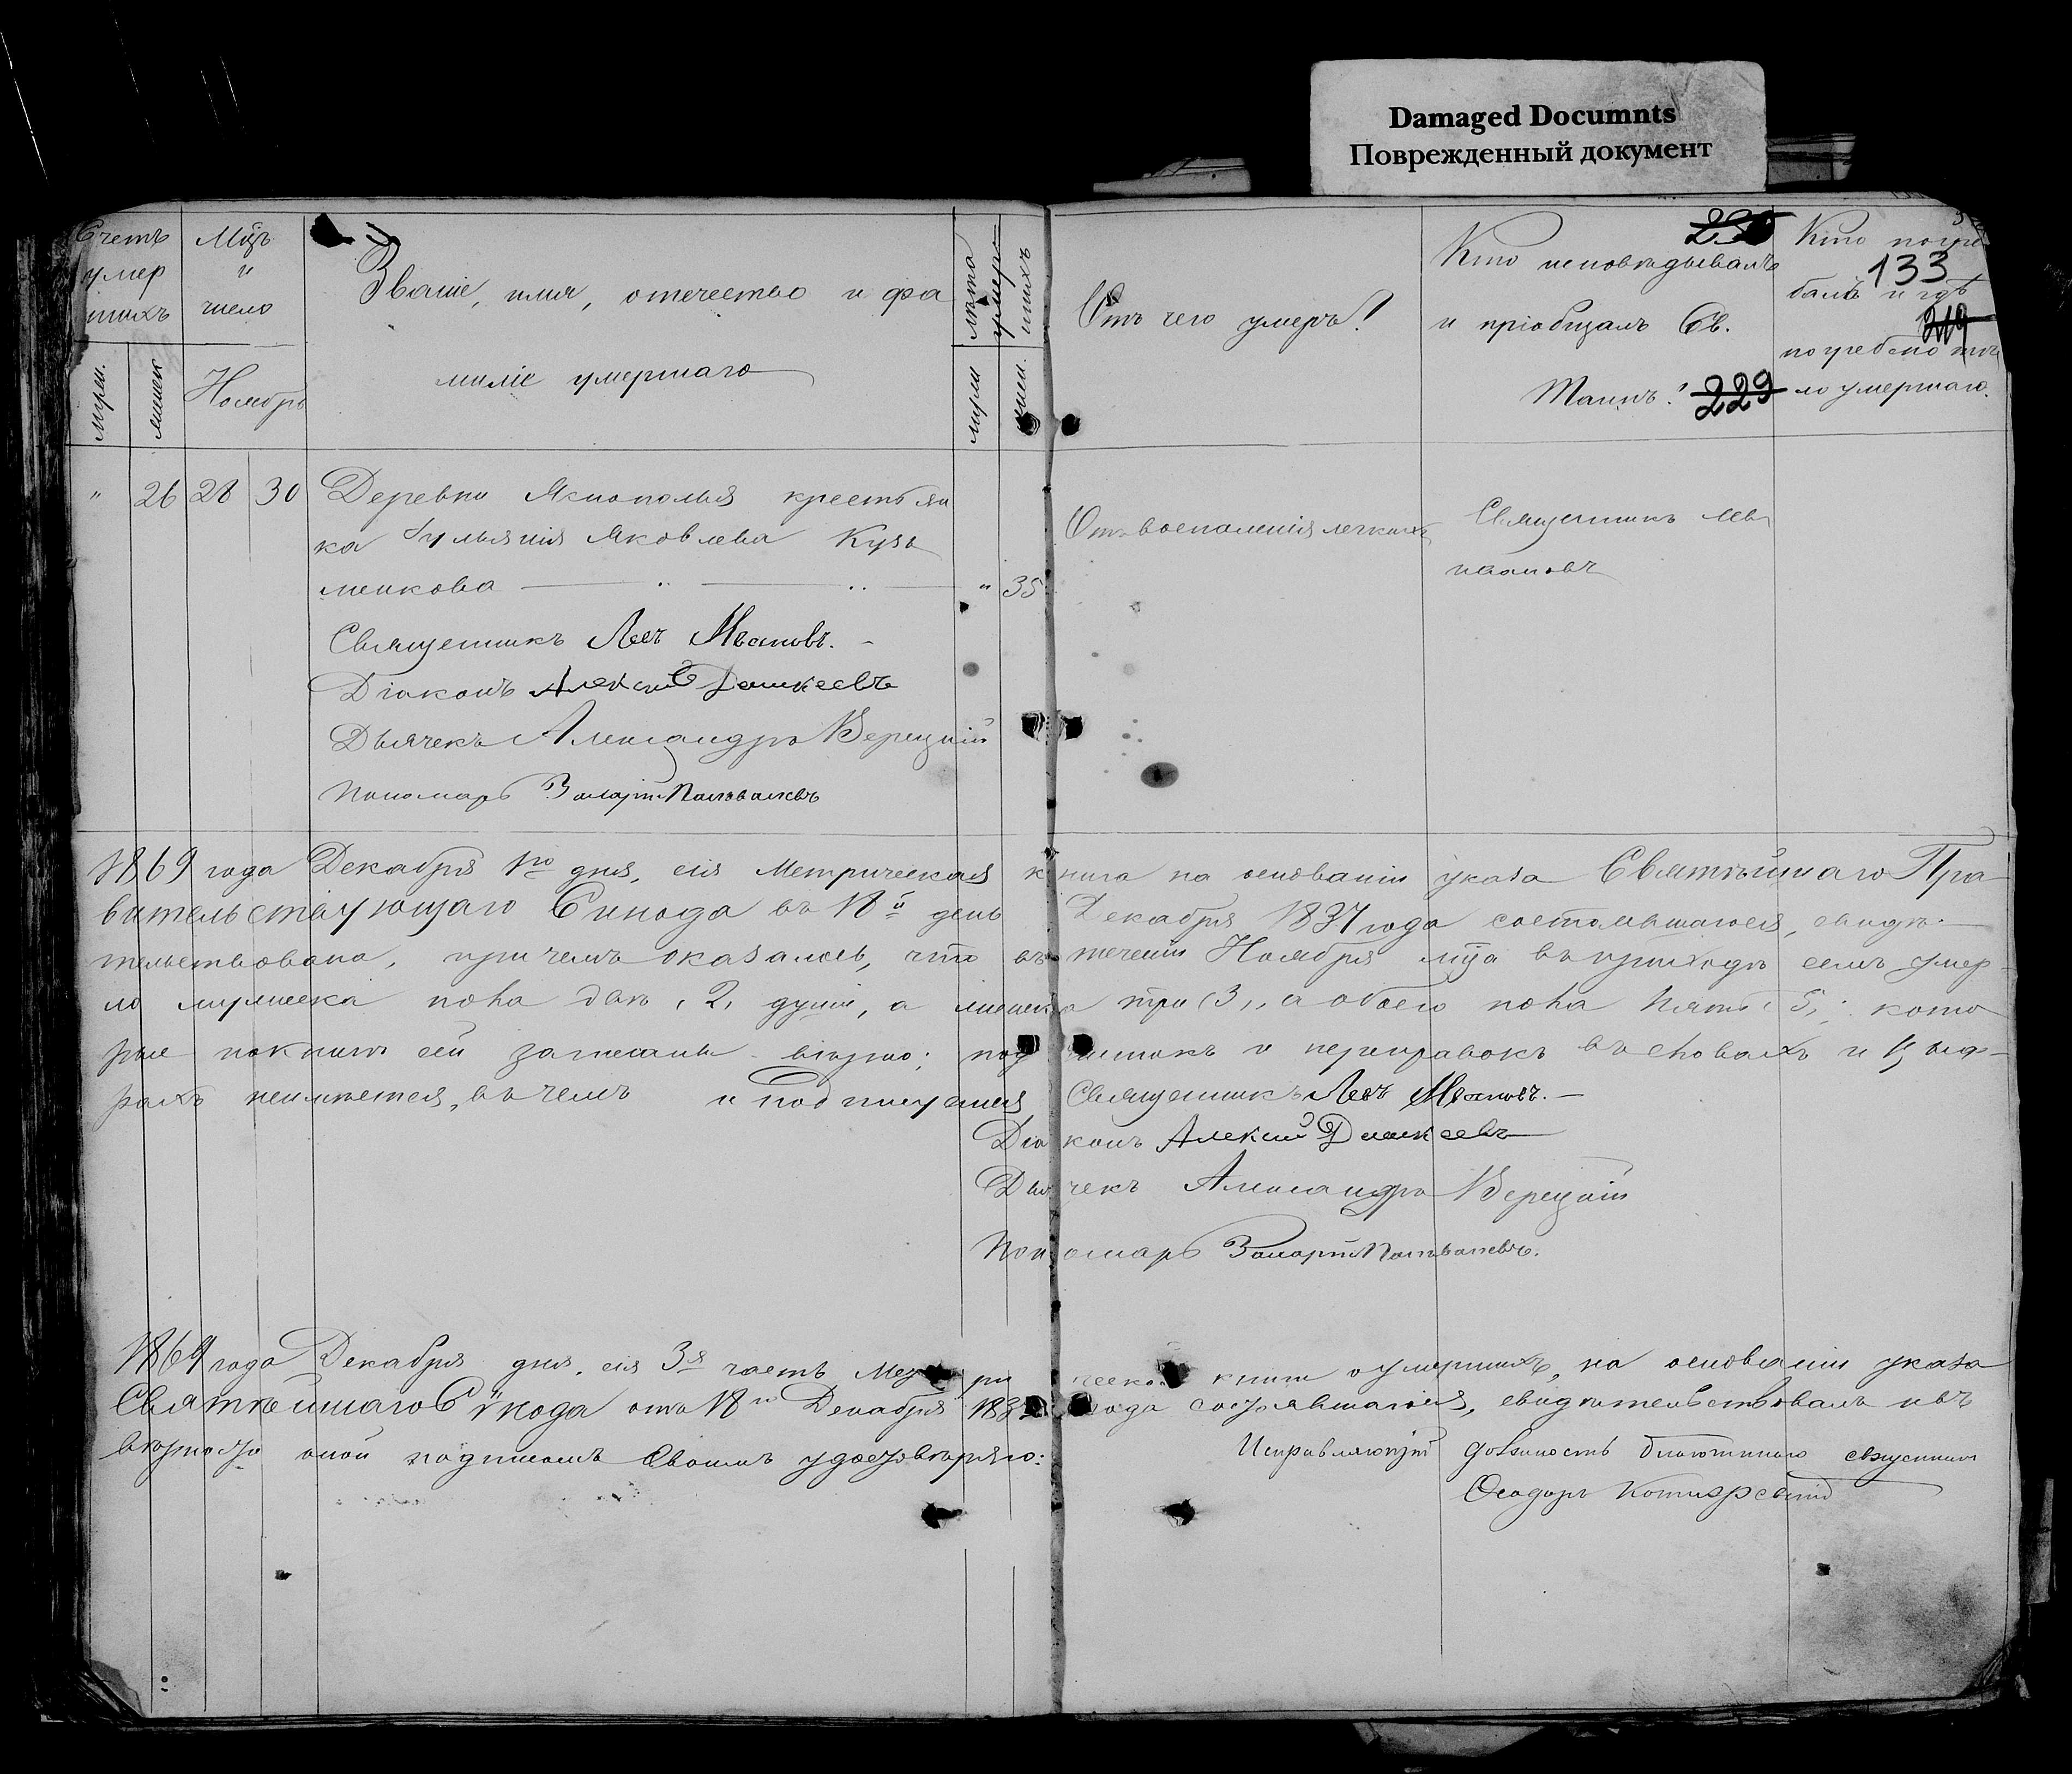 Damaged Documnts
Поврежденный документ
Счетъ умер шихъ
Мцъ и число
Званіе, имя, отечество и фа
миліе умершаго
лѣта умер шихъ
Отъ чего умеръ?
Кто исповѣдывалъ
и пріобщалъ Св.
Таинъ?
229
Кто погре
133
балъ и гдѣ
219
погребено тѣ
ло умершаго.
муж.
женск
Ноябрь
муж
жен.
" 26 28 30 Деревни Яснополья крестьян
ка Іульянія Яковлева Кузь
менкова " 35
Отъ воспаленія легкихъ
Священникъ Левъ
Ивановъ
Священникъ Левъ Ивановъ.
Діаконъ Алексій
Дьячекъ Александръ Верецкій
Пономарь
1869 года Декабря 1го дня, сія Метрическая книга на основаніи указа Святѣйшаго Пра
вительствующаго Синода въ 18й день Декабря 1837 года состоявшагося, свидѣ-
тельствована, при чемъ оказалось, что въ теченіи Ноября мца въ приходѣ семъ умер-
ло мужеска пола двѣ, 2, души, а женска три (3), а обоего пола пять (5); кото
рые по книгѣ сей записаны вѣрно; подчистокъ и переправокъ въ словахъ и цыф-
рахъ неимѣется, въ чемъ и подписуемся Священникъ Левъ Ивановъ.
Діаконъ Алексій
Дьячекъ Александръ Верецкій
Пономарь
1869 года Декабря дня, сія 3я часть Метрической книги о умершихъ, на основаніи указа
Святѣйшаго Сѵнода отъ 18го Декабря года состоявшагося, свидѣтельствовалъ и въ
вѣрности оной подписомъ своимъ удостовѣряю:
Исправляющій должность благочиннаго священникъ
Ѳеодоръ Котляревскій